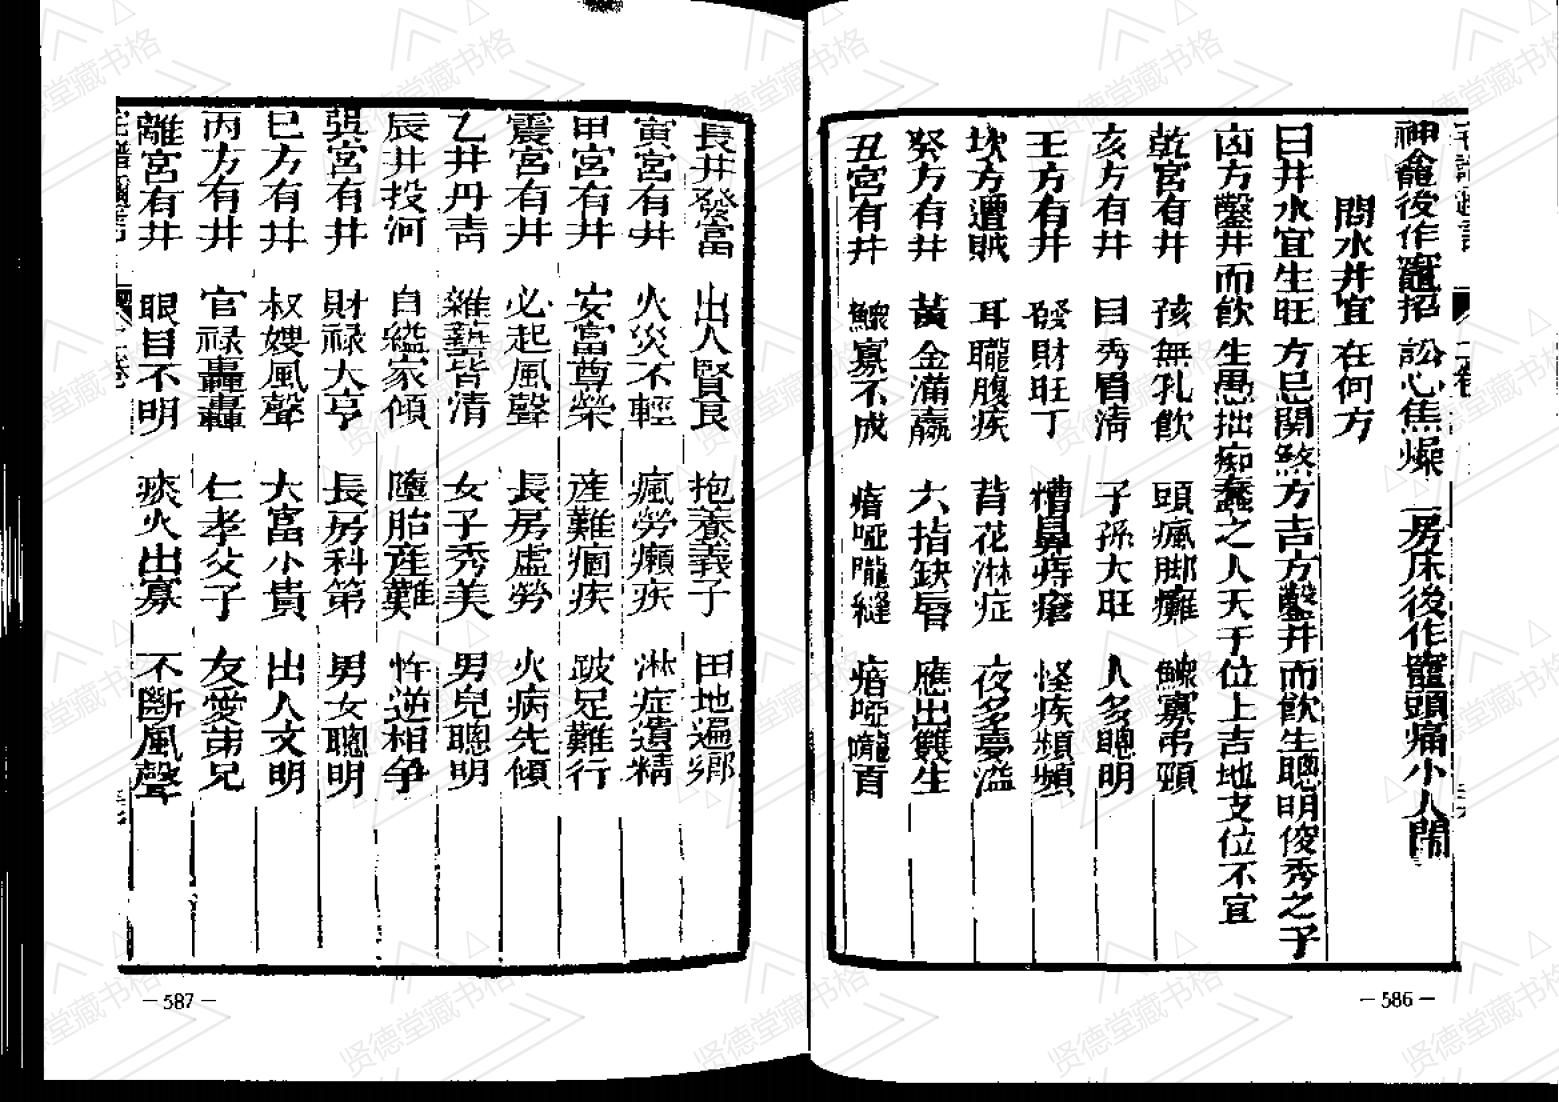 神龕後作竈招訟心焦燥　房床後作竈頭痛小人鬧
問水井宜在何方
曰井水宜生旺方忌關煞方吉方鑿井而飲生聰明俊秀之子
凶方鑿井而飲生愚拙痴蠢之人天干位上吉地支位不宜
乾宮有井　孩無乳飲　頭瘋脚癱　鰥寡弔頸
亥方有井　目秀眉清　子孫大旺　人多聰明
壬方有井　發財旺丁　糟鼻痔瘡　怪疾頻頻
坎方遭賊　耳聾腹疾　背花淋症　夜多夢溢
癸方有井　黃金滿贏　六指缺唇　應出雙生
丑宮有井　鰥寡不成　瘖啞　瘖啞
— 586 —
艮井發富　出人賢良　抱養義子　田地遍鄉
寅宮有井　火災不輕　瘋勞癩疾　淋症遺精
甲宮有井　安富尊榮　產難痼疾　跛足難行
震宮有井　必起風聲　長房虛勞　火病先傾
乙井丹青　雜藝皆清　女子秀美　男兒聰明
辰井投河　自縊家傾　墮胎產難　忤逆相爭
巽宮有井　財祿大亨　長房科第　男女聰明
巳方有井　叔嫂風聲　大富小貴　出人文明
丙方有井　官祿轟轟　仁孝父子　友愛弟兄
離宮有井　眼目不明　痰火出寡　不斷風聲
— 587 —
贤德堂藏书格